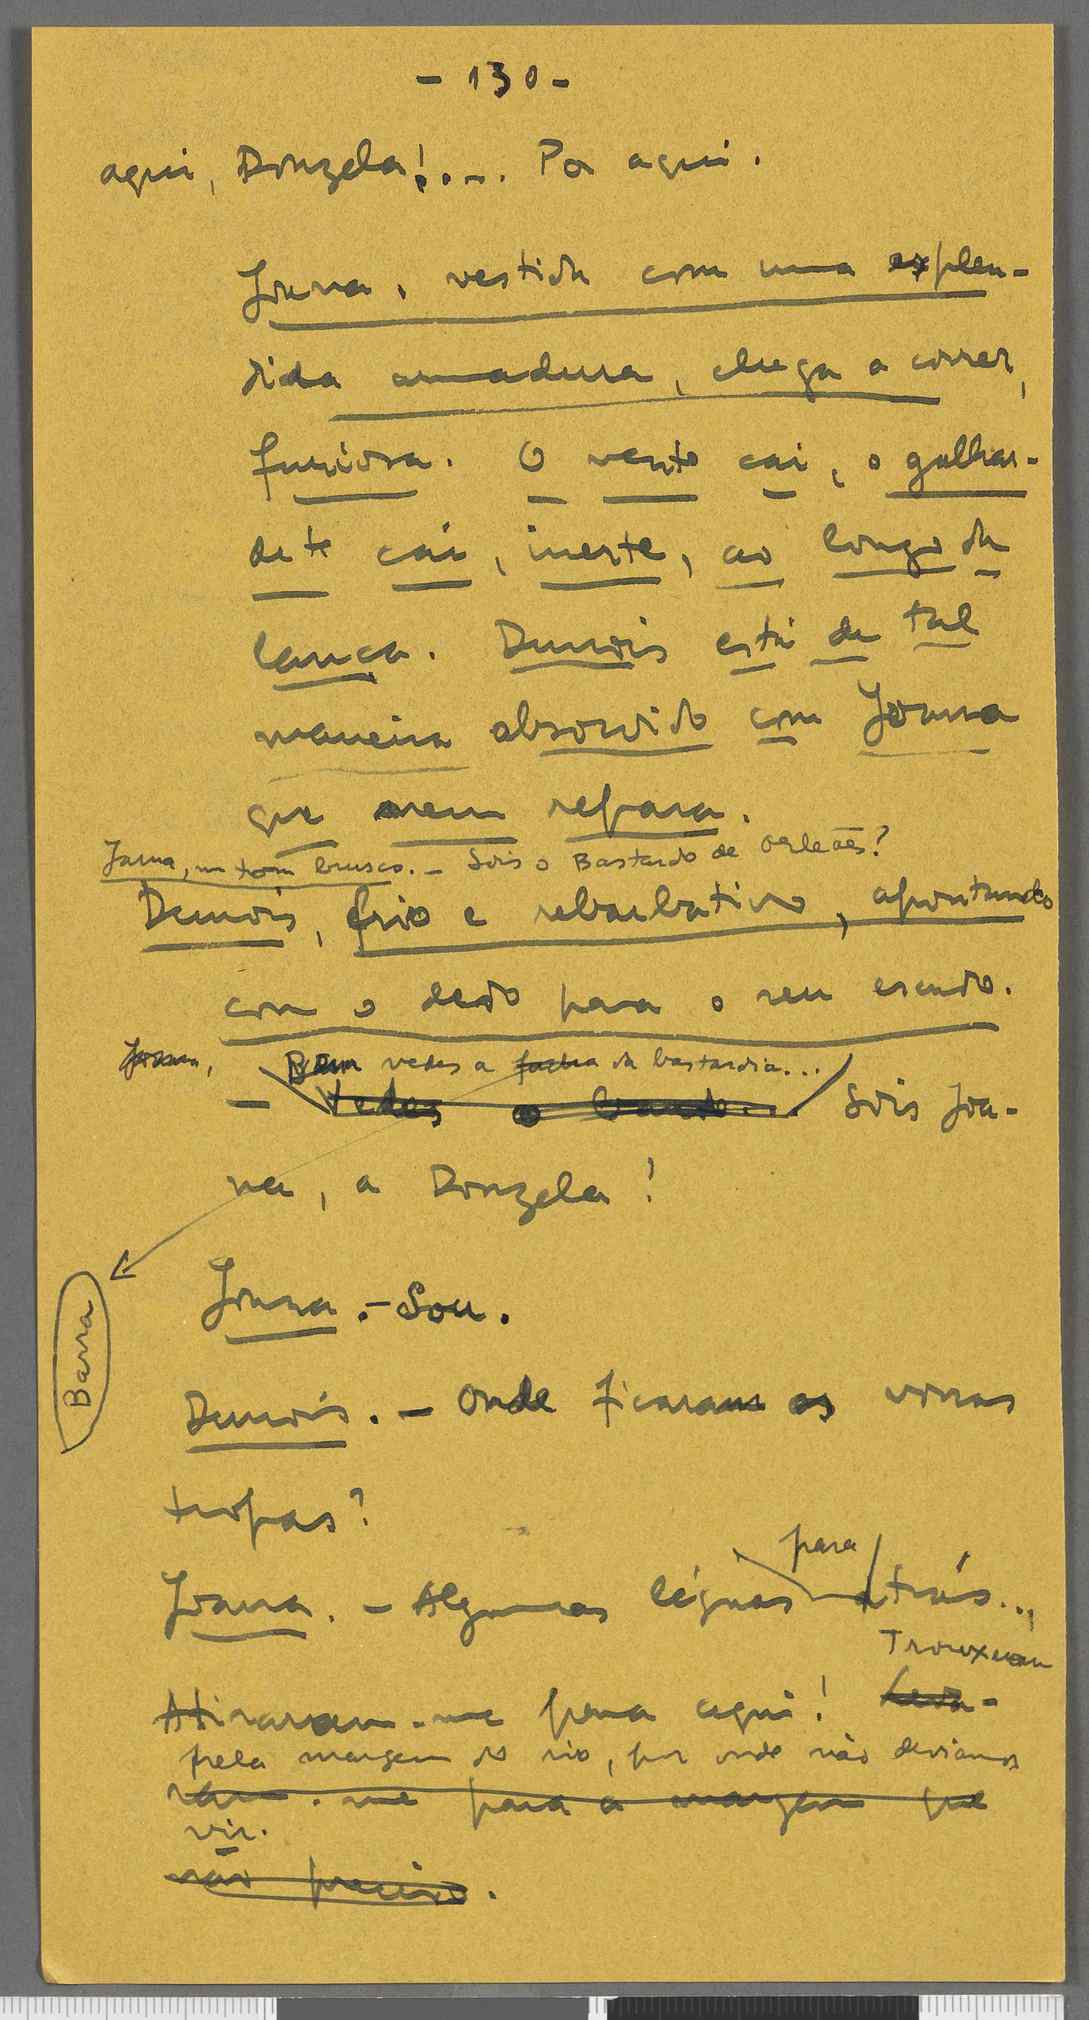 - 130 -
aqui, Donzela!... Por aqui.
Joana, vestida com uma esplen-
dida armadura, chega a correr,
furiosa. O vento cai, o galhar-
dete cai, inerte, ao longo da
lança. Dunois está de tal
maneira absorvido com Joana
que nem repara.
Joana, num tom brusco. - Sois o Bastardo de Orleães?
Dunois, frio e rebarbativo, apontando
com o dedo para o seu escudo.
Joana,
Bem vedes a facha da bastardia...
- Vedes o bando... Sois Joa-
na, a Donzela!
Joana. - Sou.
Barra
Dunois. - Onde ficaram as vossas
tropas?
para
Joana. - Algumas léguas atrás...
Trouxeram
Atiraram-me para aqui! Leva-
pela margem do rio, por onde não devíamos
ram-me para a margem que
vir.
não preciso.